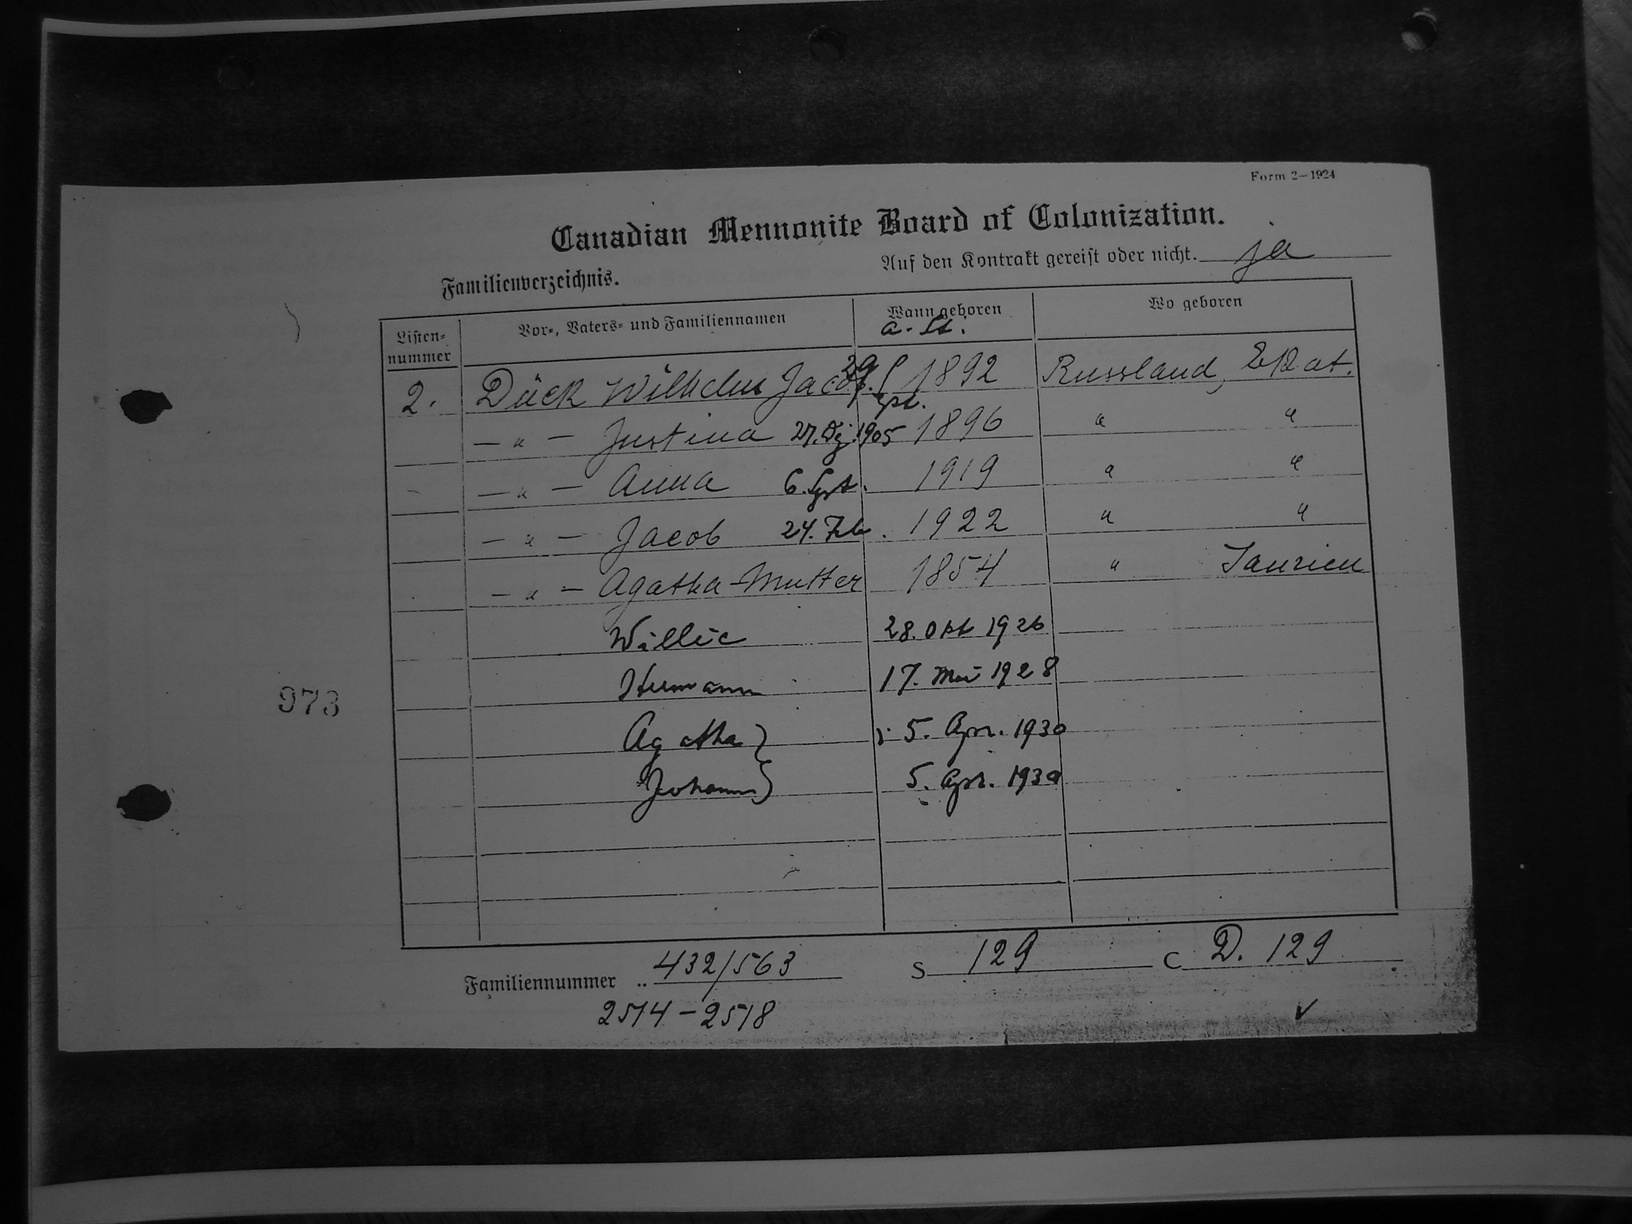 Form 2—1924
Canadian Mennonite Board of Colonization.
Familienverzeichnis.
Auf den Kontrakt gereist oder nicht. ja
Listen-nummer Vor-, Vaters- und Familiennamen Wann geboren a. St. Wo geboren
2. Dück Wilhelm Jacob 29 Spt. 1892 Russland, Ekat.
— " — Justina 27. Dz. 1905 1896 " "
— " — Anna 6. Spt. 1919 " "
— " — Jacob 24. Feb. 1922 " "
— " — Agatha-Mutter 1854 " Taurien
Willie 28. Okt 1926
Hermann 17. Mai 1928
973
Agatha } 5. Apr. 1930
Johann } 5. Apr. 1930
Familiennummer .. 432/563 S 129 C D. 129
2514-2518 ✓